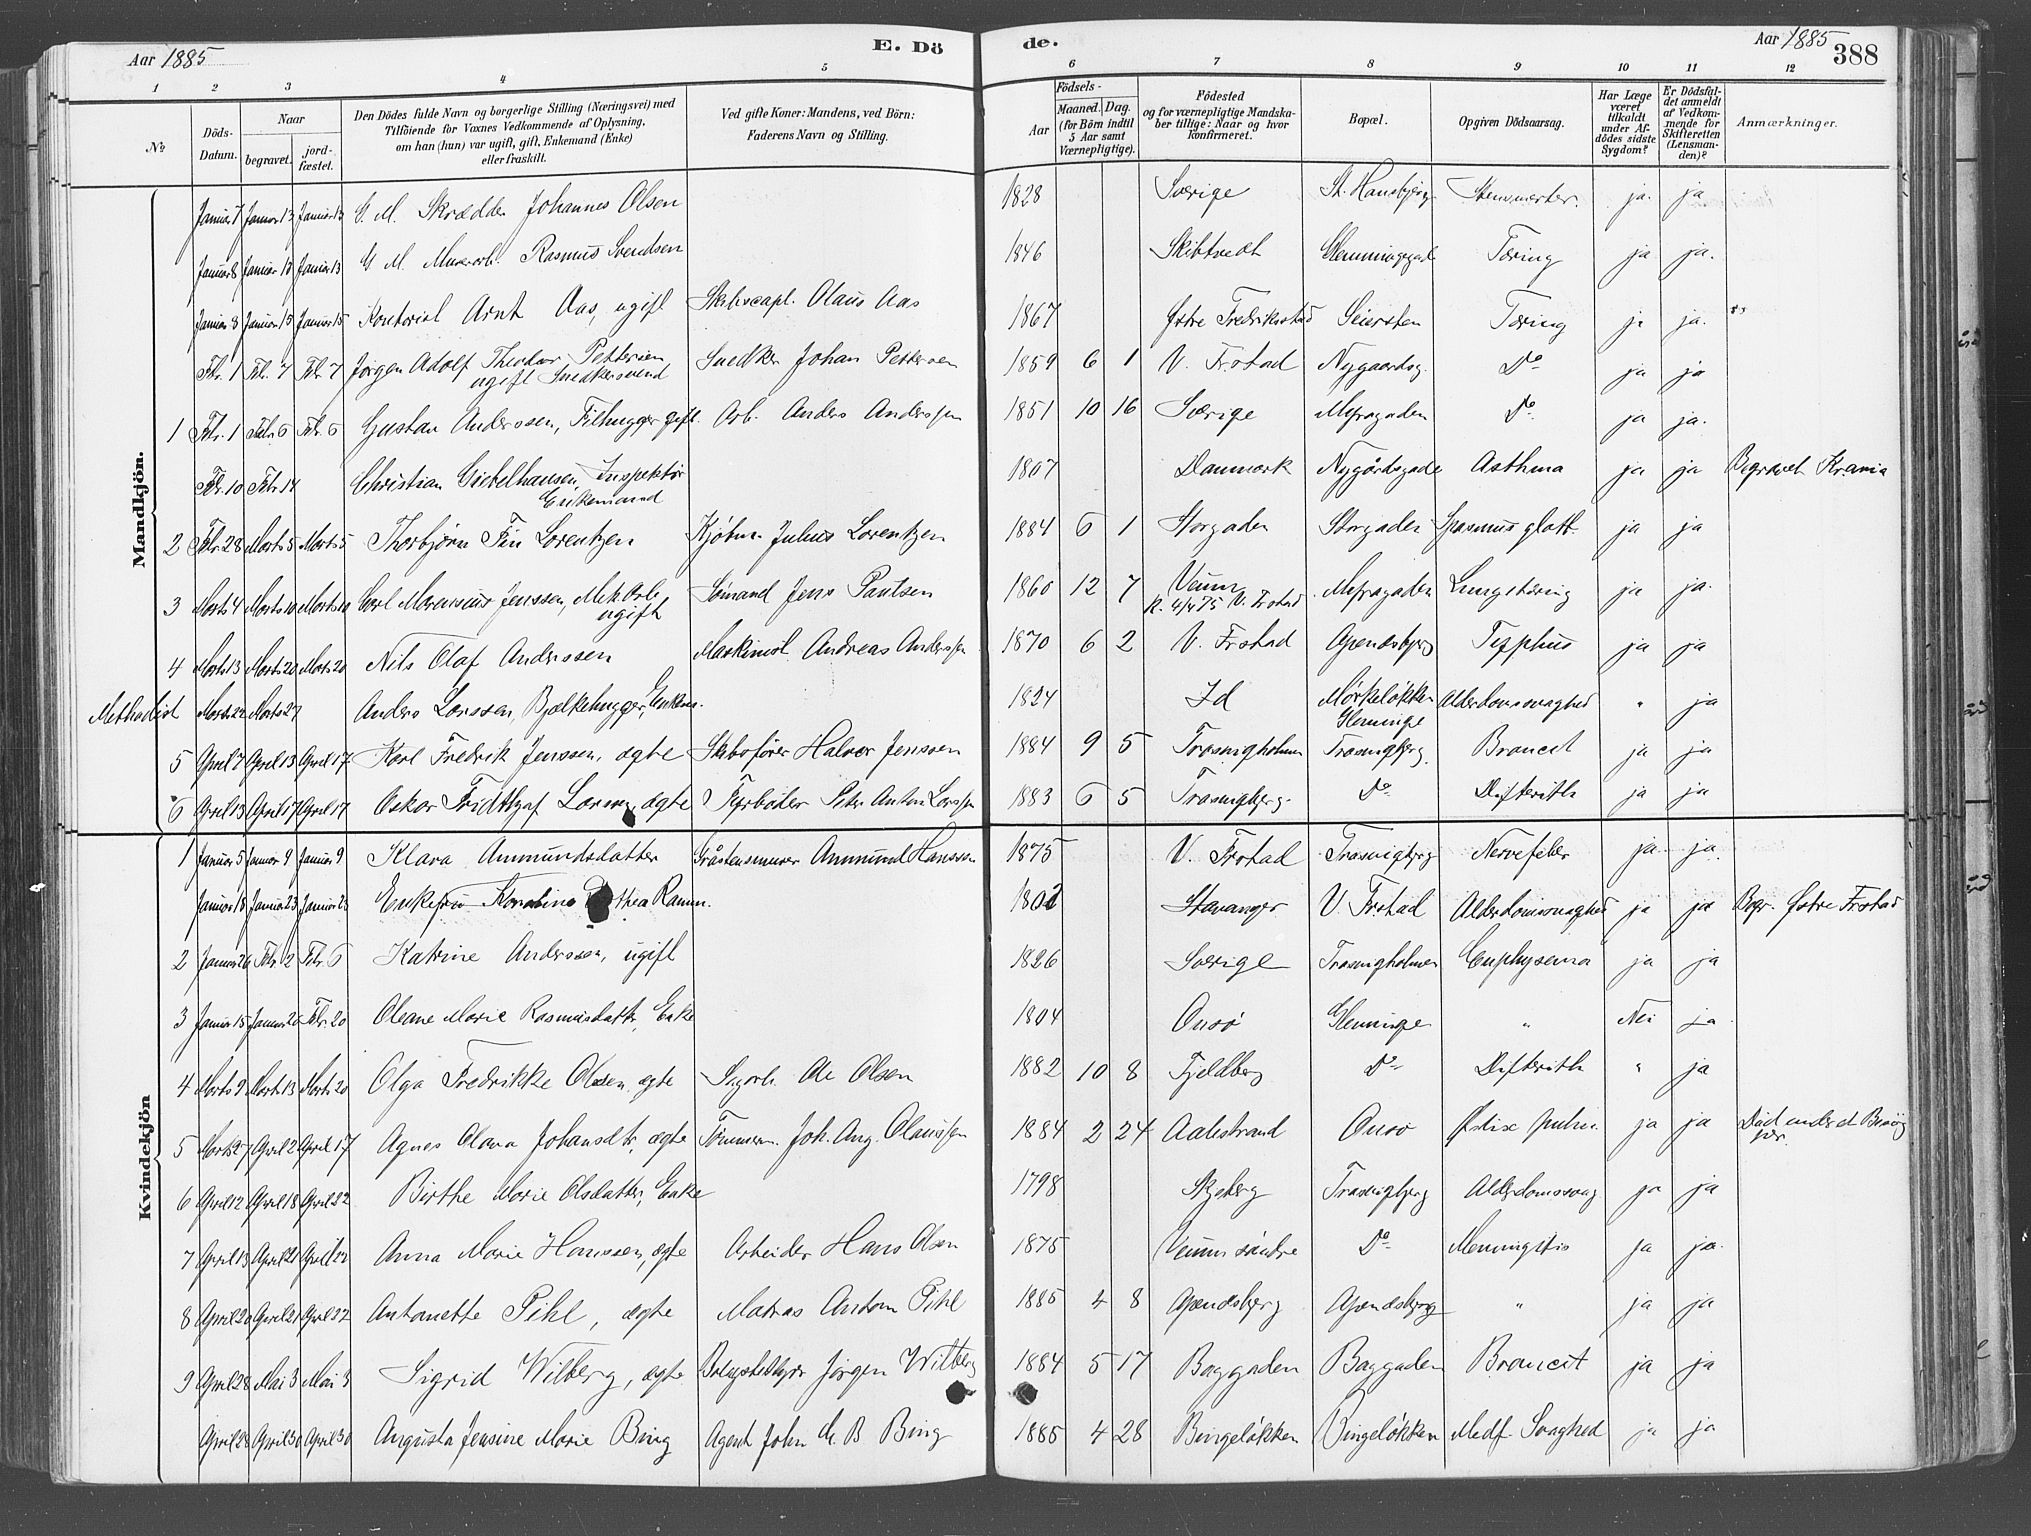 Aar 1885 E. Dö de. Aar 1885 388
1 2 3 4 5 6 7 8 9 10 11 12
№ Döds-Datum. Naar begravet. jordfæstet. Den Dödes fulde Navn og borgerlige Stilling (Næringsvei) med Tilföiende for Voxnes Vedkommende af Oplysning, om han (hun) var ugift, gift, Enkemand (Enke) eller fraskilt. Ved gifte Koner: Mandens, ved Börn: Faderens Navn og Stilling. Aar Födsels- Maaned. Dag. (for Börn indtil 5 Aar samt Værnepligtige). Födested og for værnepligtige Mandskaber tillige: Naar og hvor konfirmeret. Bopæl. Opgiven Dödsaarsag. Har Læge været tilkaldt under Afdödes sidste Sygdom? Er Dödsfaldet anmeldt af Vedkommende for Skifteretten (Lensmanden)? Anmærkninger.
Mandkjön.
Januar 7 Januar 13 Januar 13 G. M. Skrædder Johannes Olsen 1828 Sverige St. Hansbjerg ja. ja
Januar 8 Januar 13 Januar 13 G. M. Murerarb. Rasmus Svendsen 1846 Skibtvedt Glemmingegad Tæring ja ja.
Januar 8 Januar 15 Januar 15 Kontorist Arnt Aas, ugift Skibscapt. Olaus Aas 1867 Østre Fredriksstad Seiersten Tæring ja ja.
Febr. 1 Febr. 7 Febr. 7 Jørgen Adolf Theodor Pettersen ugift Snedkersvend Snedker Johan Pettersen 1859 6 1 V. Frstad Nygaardsg. Do ja ja
1 Febr. 1 Febr. 6 Febr. 6 Gustav Anderssen, Filhugger gift. Arb. Anders Anderssen 1851 10 16 Sverige Do. ja ja.
Febr. 10 Febr. 14 Christian Giebelhausen, Inspektør Enkemand 1807 Danmark Nygårdsgade Asthma ja ja Begravet Krania
2 Febr. 28 Marts 5 Marts 5 Thorbjørn Fin Lorentzen Kjøbm. Julius Lorentzen 1884 6 1 Storgaden Storgaden Spasmus glott. ja ja
3 Marts 4 Marts 10 Marts 10 Carl Marensius Jenssen, Mek. Arb. ugift Sømand Jens Paulsen 1860 12 7 Veum K. 4/4 75 V. Frstad Lungetæring ja ja.
4 Marts 13 Marts 20 Marts 20 Nils Olaf Anderssen Maskinist Andreas Anderssen 1870 6 2 V. Frstad Apenesbjerg Typhus ja ja
Methodist Marts 22 Marts 27 Anders Larssen, Bjelkehugger, Enkem. 1824 Id Mørkeløkken Glemminge Alderdomssvaghed " ja
5 April 7 April 13 April 17 Karl Fredrik Jenssen, ægte Skibsfører Halvor Jenssen 1884 9 5 Trosvigholmen Trosvigbjerg. Broncit ja ja
6 April 13 April 17 April 17 Oskar Fridthjof Larsen, ægte Fyrbøter Peter Anton Larssen 1883 6 5 Trosvigbjerg. Do Difterith ja ja
Kvindekjön
1 Januar 5 Januar 9 Januar 9 Klara Ammundsdatter Gråstensmurer Ammund Hanssen 1875 V. Frstad Trosvigbjerg Nervefeber ja ja.
Januar 18 Januar 23 Januar 23 Enkefru Ramm. Stavanger V. Frstad Alderdomssvaghed ja ja Begr. Østre Frstad
2 Januar 26 Febr. 2 Febr. 6 Katrine Anderssen, ugift 1826 Sverige Trosvigholmen Emphysema ja ja
3 Januar 15 Januar 26 Febr. 20 Oleane Marie Rasmusdatter, Enke 1804 Onsø Glemminge " Nei ja
4 Marts 9 Marts 13 Marts 20 Olga Fredrikke Olsen, ægte Sagarb. Ole Olsen 1882 10 8 Fjeldberg Do Difterith " ja
5 Marts 27 April 2 April 17 Agnes Olava Johansdtr, ægte Tømmerm. Joh. Aug. Olaussen 1884 2 24 Aalestrand Onsø ja ja Död under et Besøg
6 April 12 April 18 April 22 Birthe Marie Olsdatter, Enke 1798 Skjeberg Trosvigbjerg Alderdomssvag ja ja
7 April 13 April 21 April 22 Anna Marie Hanssen, ægte Arbeider Hans Olsen 1875 Veum söndre Do Menningitis ja ja.
8 April 20 April 21 April 22 Antonette Pihl, ægte Matros Anton Pihl 1885 4 8 Apenesbjerg Apenesbjerg " ja ja
9 April 28 Mai 3 Mai 3 Sigrid Wilberg, ægte Jørgen Wilberg 1884 5 17 Baggaden Baggaden Broncit ja ja
April 28 April 30 April 30 Augusta Jensine Marie Bing Agent John M. B Bing 1885 4 28 Bingeløkken Bingeløkken Medf. Svaghed ja ja